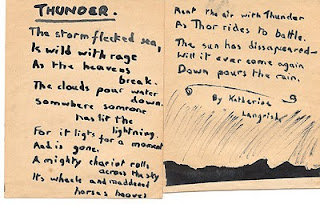 THUNDER.
The storm flecked sea,
Is wild with rage
As the heavens
break.
The clouds pour water
down.
Somwhere someone
has lit the
lightning.
For it ligts for a moment
And is gone.
A mighty chariot rolls
across the sky
Its wheels and maddened
horses hooves
Rent the air with Thunder
As Thor rides to battle.
The sun has dissapeared—
Will it ever come again
Down pours the rain.
By Katherine
Langrish